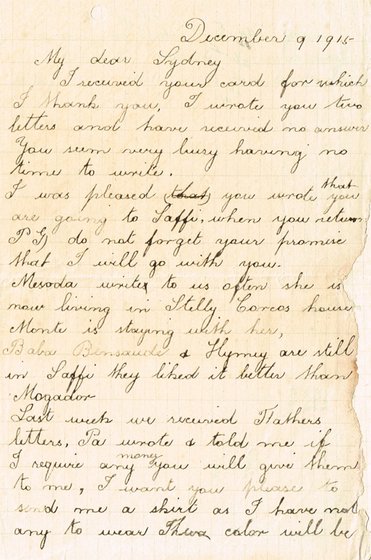 December 9 1915
My dear Sydney
I received your card for which
I thank you, I wrote you two
letters and have received no answer
You seem very busy having no
time to write.
I was pleased (that) you wrote that you
are going to Saffi, when you return
P G) do not forget your promise
that I will go with you.
Mesoda writes to us often she is
now living in Stelly Corcos house
Monte is staying with her,
Baba Bensaude & Hymey are still
in Saffi they liked it better than
Mogador
Last week we received Fathers
letters, Pa wrote & told me if
I require any money you will give them
to me, I want you please to
send me a skirt as I have not
any to wear color will be